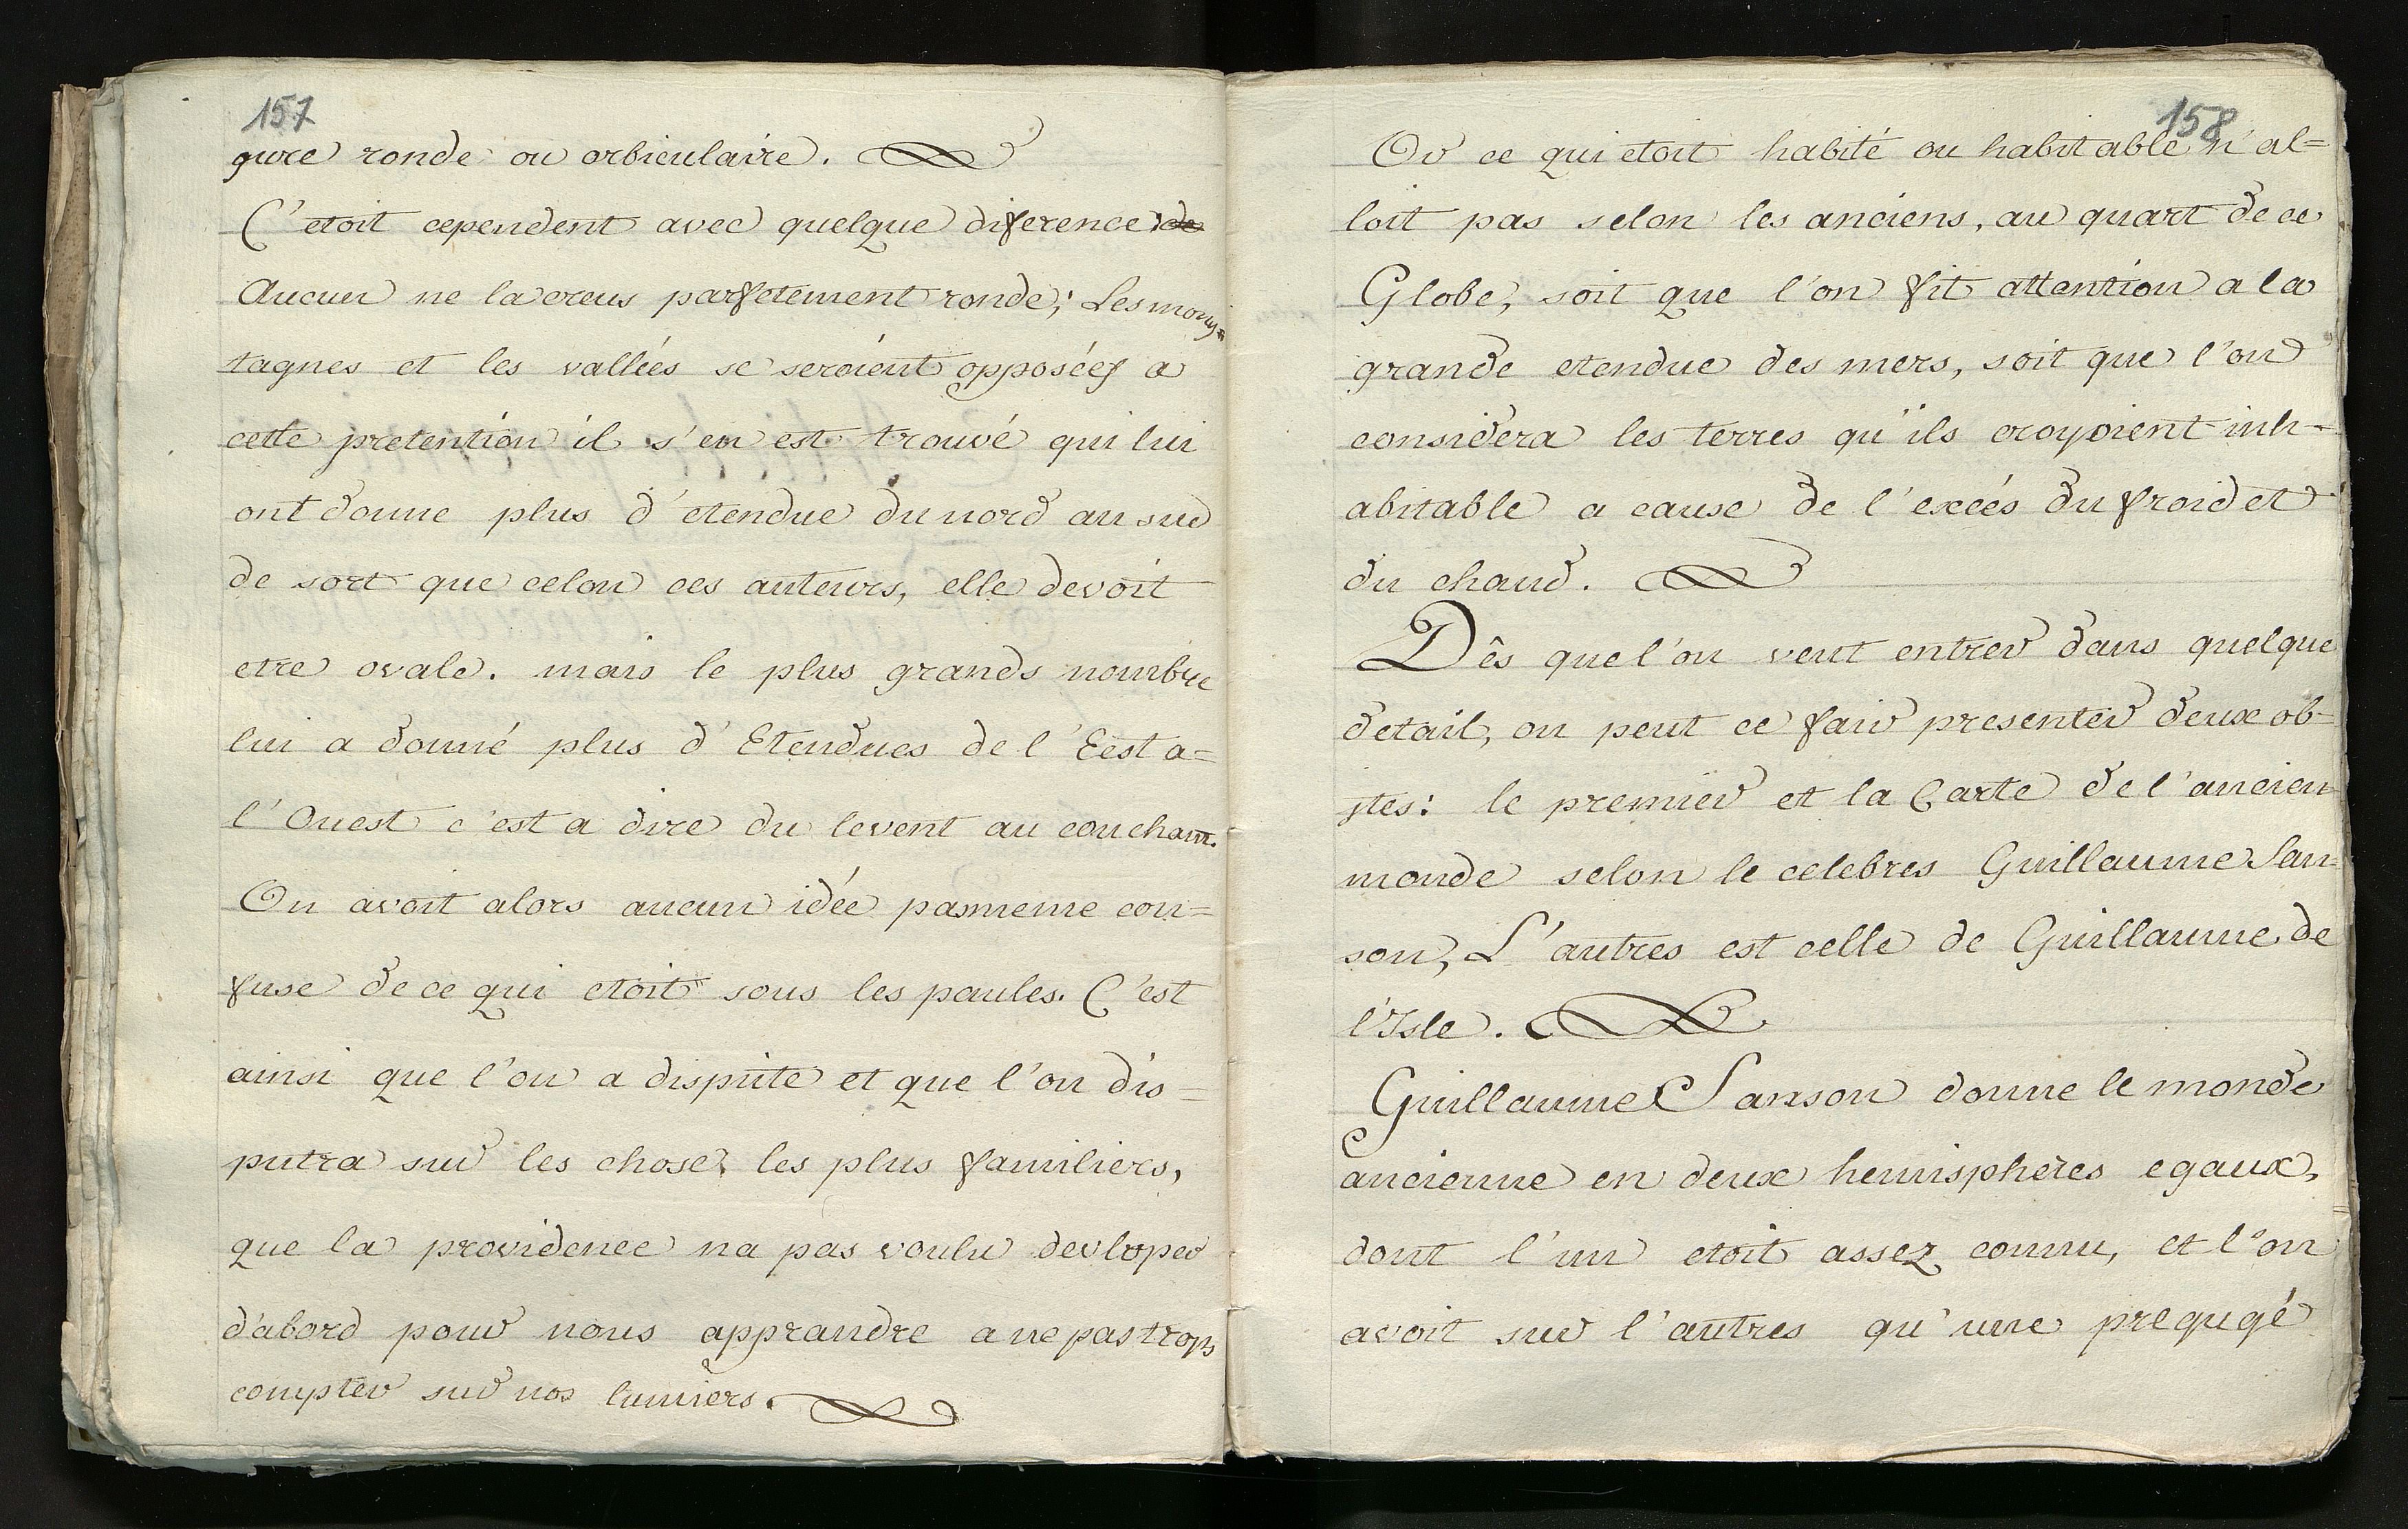 157
gure ronde ou orbiculaire.
C'etoit cependent avec quelque diference de
Aucun ne la creus parfetement ronde; Les mon=
tagnes et les vallées se seroient opposées a
cette pretention il s'en est trouvé qui lui
ont donne plus d'etendue du nord au sud
de sort que celon ces auteurs, elle devoit
etre ovale. mais le plus grands nombre
lui a donné plus d'Etendues de l'Eest a=
l'Ouest c'est a dire du levent au couchant.
On avoit alors aucun idée pasmeme con=
fuse de ce qui etoit sous les paules. C'est
ainsi que l'on a dispute et que l'on dis=
putra sur les choses les plus familiers,
que la providence na pas voulu devloper
d'abord pour nous apprandre a ne pas trop
compter sur nos lumiers.
158
Or ce qui etoit habité ou habitable n'al=
loit pas selon les anciens, au quart de ce
Globe, soit que l'on fit attention a la
grande etendue des mers, soit que l'on
considera les terres qu'ils croyoient inh=
abitable a cause de l'excés du froid et
du chaud.
Dês que l'on veut entrer dans quelque
detail, on peut ce fair presenter deux ob=
jtes: le premier et la Carte de l'ancien
monde selon le celebres Guillaume San=
son, L'autres est celle de Guillaume de
l'Isle.
Guillaume Sanson donne le monde
ancienne en deux hemispheres egaux,
dont l'un etoit assez connu, et l'on
avoit sur l'autres qu'une pregugé